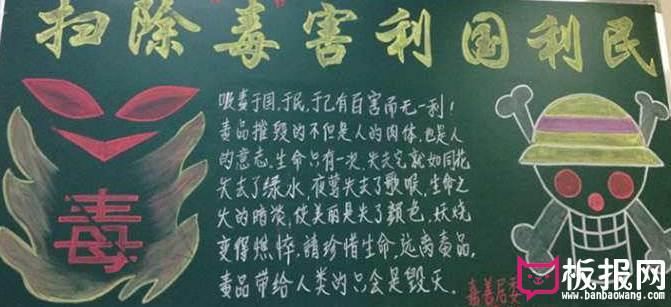 扫除毒害利国利民
吸毒于国、于民、于己有百害而无一利！
毒品摧毁的不但是人的肉体，也是人
的意志，生命只有一次，失去它就如同花
失去了绿水，夜莺失去了歌喉，生命之
火的暗淡，使美丽失了颜色，妖娆
变得憔悴，請珍惜生命，远离毒品，
毒品带给人类的只会是毁灭。
毒
板报网
www.banbaowang.com